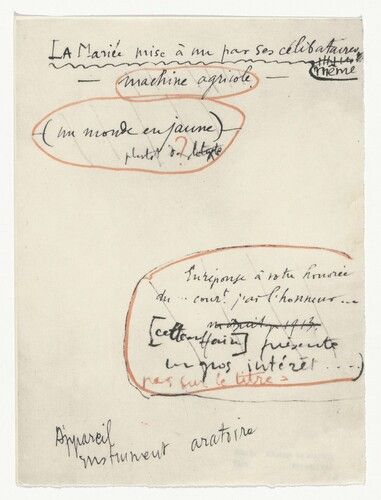 LA Mariée mise à nu par ses célibataires
même
— machine agricole —
(un monde en jaune)
plutôt ds le texte
?
En réponse à votre honorée
du .. cour^t j'ai l'honneur ...
1913.
[cette affaire] présente
un gros intérêt ....)
pas sur le titre
Appareil
instrument aratoire